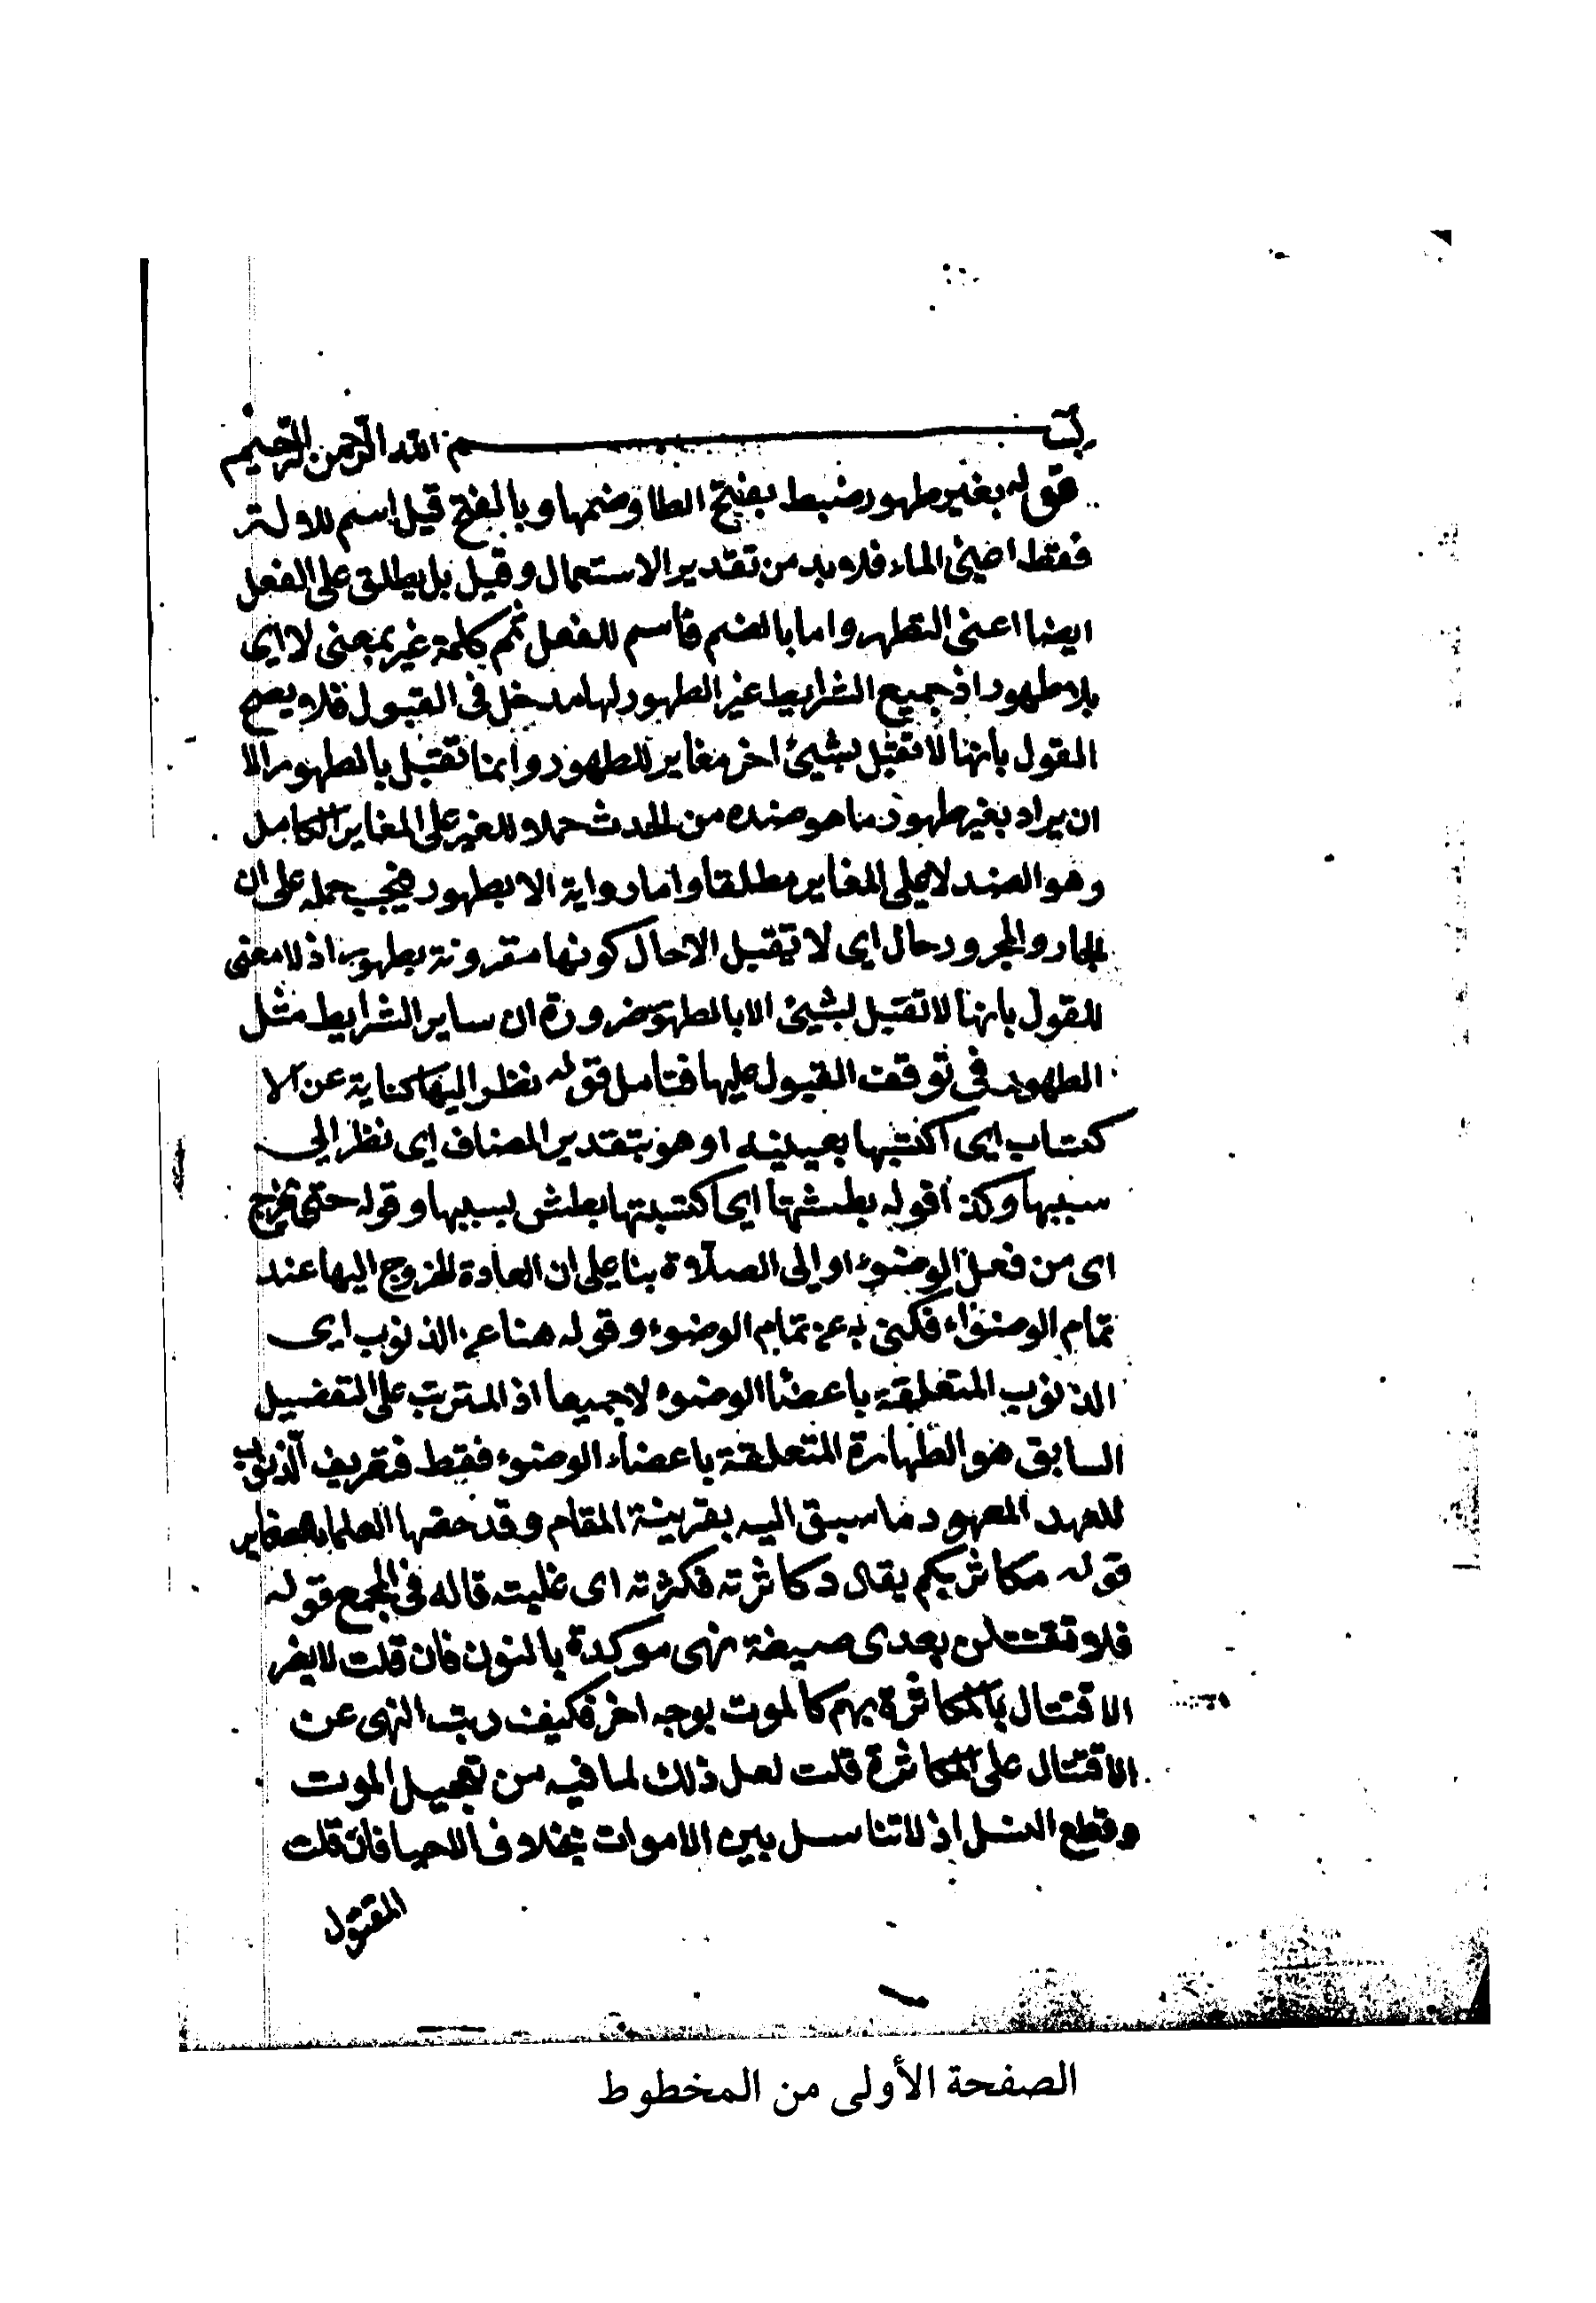 بسم الله الرحمن الرحيم
قوله بغير طهور ضبط بفتح الطا وضمها وبالفتح قيل اسم للالة
فقط اعنى الماء فلا بد من تقدير الاستعمال وقيل بل يطلق على الفعل
ايضا اعنى التطهر واما بالضم فاسم للفعل ثم كلمة غير بمعنى لا اى
بلا طهور اذ جميع الشرايط غير الطهور لها مدخل فى القبول فلا يصح
القول بانها لا تقبل بشيئ اخر مغاير للطهور وانما تقبل بالطهور الا
ان يراد بغير طهور ما هو ضده من الحدث حملا للغير على المغاير الكامل
وهو الضد لا على المغاير مطلقا واما رواية الا بطهور فيجب حمله على ان
الجار والمجرور حال اى لا تقبل الا حال كونها مقرونة بطهور اذ لا معنى
للقول بانها لا تقبل بشيئ الا بالطهور ضرورة ان ساير الشرايط مثل
الطهور فى توقف القبول عليها فتامل قوله نظر اليها كناية عن الا
كتساب اى اكتبها بعينيه او هو بتقدير المضاف اى نظر الى
سببها وكذا قوله بطشتها اى اكتسبتها بطش بسببها وقوله حتى يخرج
اى من فعل الوضوء او الى الصلاة بنا على ان العادة الخروج اليها عند
تمام الوضوء فكنى به عن تمام الوضوء وقوله هنا عن الذنوب اى
الذنوب المتعلقة باعضا الوضوء لا جميعا اذ المترتب على التفصيل
السابق هو الطهارة المتعلقة باعضاء الوضوء فقط فتعريف الذنوب
للعهد المعهود ما سبق اليه بقرينة المقام وقد خصها العلما بالصغاير
قوله مكاثر بكم يقال كاثرته فكثرته اى غلبته قاله فى المجمع قوله
فلا تقتتلن بعدى صيغة نهى موكدة بالنون فان قلت لا يضر
الاقتتال بالمكاثرة بهم كالموت بوجه اخر فكيف رتب النهى عن
الاقتتال على المكاثرة قلت لعل ذلك لما فيه من تعجيل الموت
وقطع النسل اذ لا تناسل بين الاموات بخلاف الاحيا فان قلت
المقتول
الصفحة الأولى من المخطوط